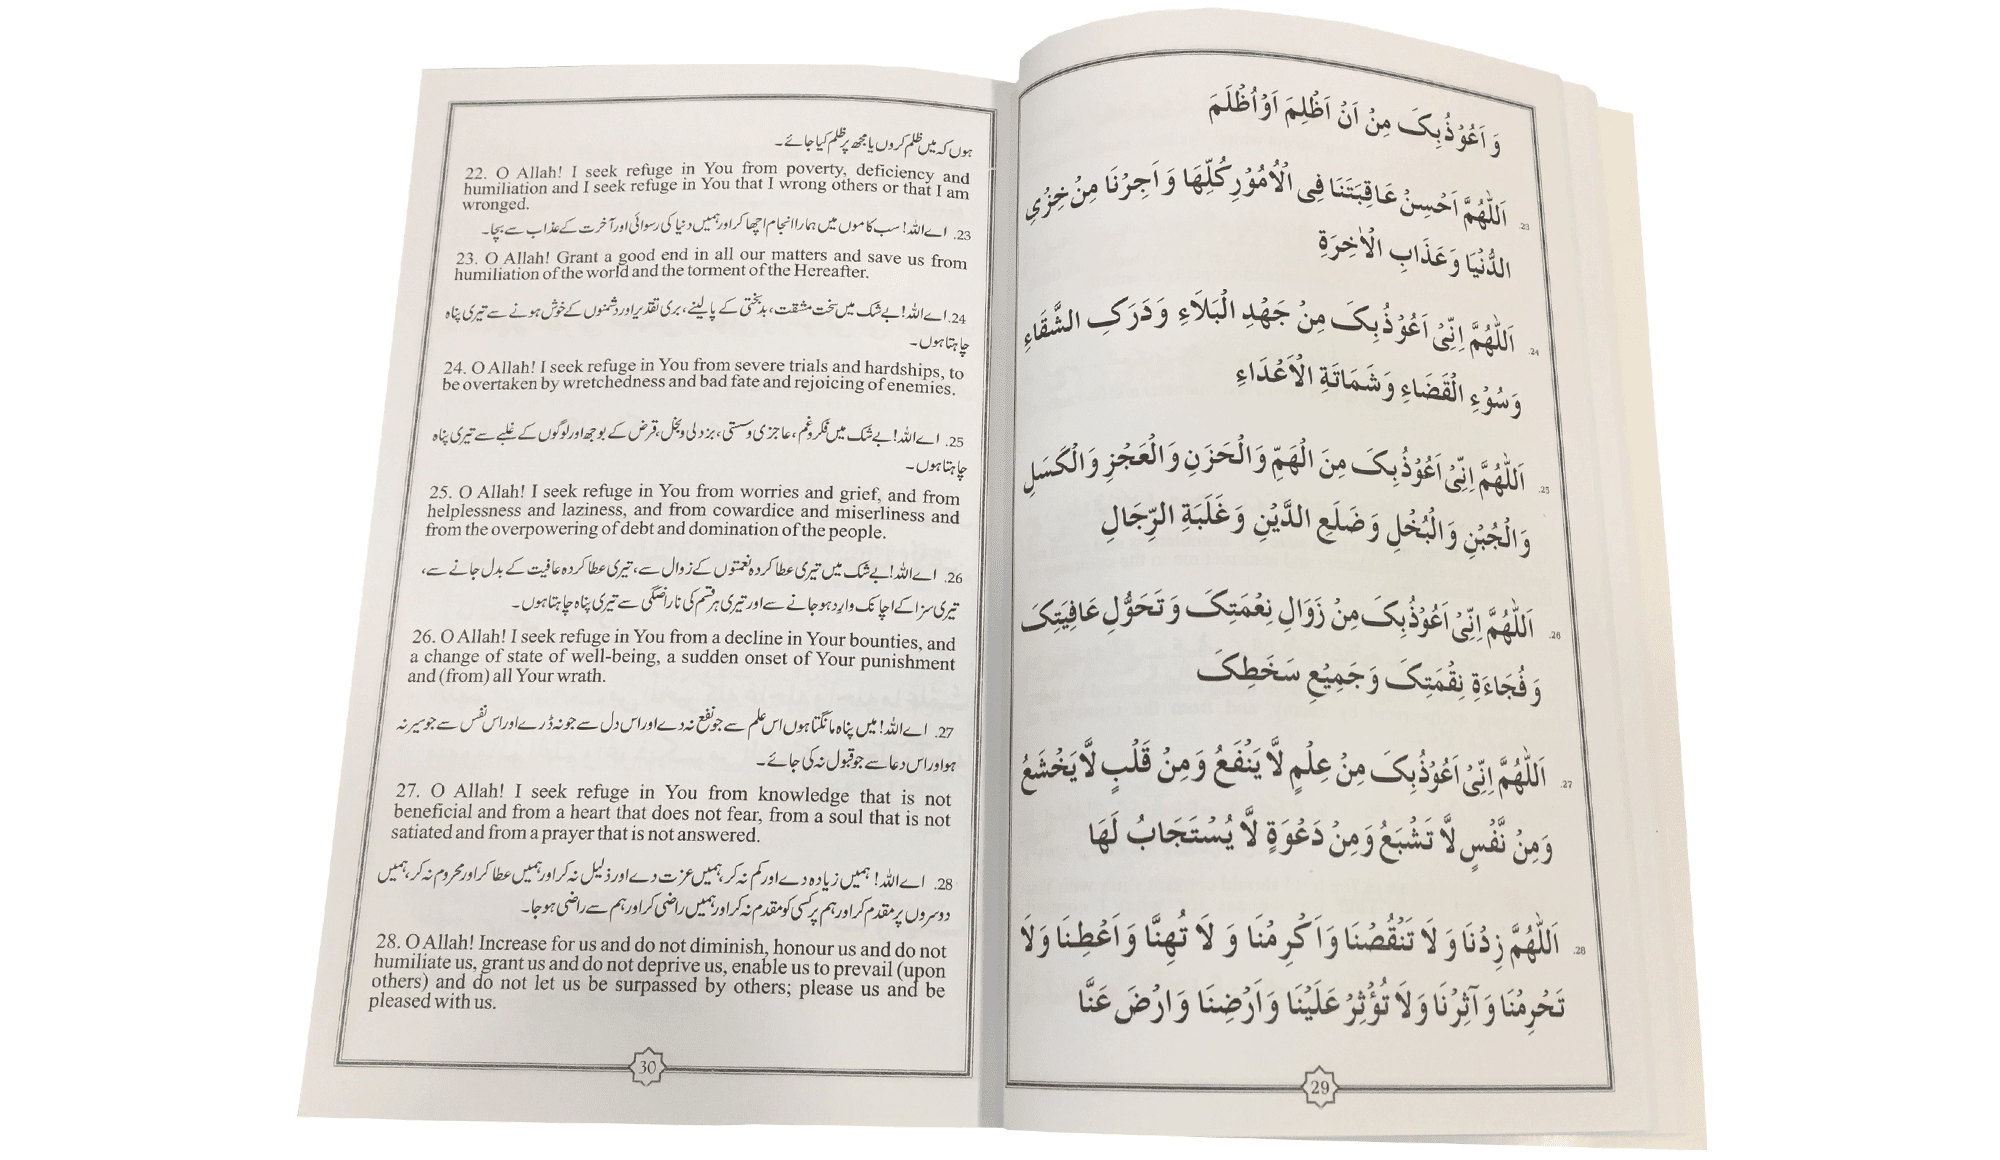 وَ اَعُوْذُبِکَ مِنْ اَنْ اَظْلِمَ اَوْاُظْلَمَ
23. اَللّٰهُمَّ اَحْسِنْ عَاقِبَتَنَا فِی الْاُمُوْرِ کُلِّهَا وَ اَجِرْنَا مِنْ خِزْیِ
الدُّنْیَا وَعَذَابِ الْاٰخِرَةِ
24. اَللّٰهُمَّ اِنِّیْ اَعُوْذُبِکَ مِنْ جَهْدِ الْبَلَاَءِ وَدَرَکِ الشَّقَاءِ
وَسُوْءِ الْقَضَاءِ وَشَمَاتَةِ الْاَعْدَاءِ
25. اَللّٰهُمَّ اِنِّیْ اَعُوْذُبِکَ مِنَ الْهَمِّ وَالْحَزَنِ وَالْعَجْزِ وَالْکَسَلِ
وَالْجُبْنِ وَالْبُخْلِ وَضَلَعِ الدَّیْنِ وَغَلَبَةِ الرِّجَالِ
26. اَللّٰهُمَّ اِنِّیْ اَعُوْذُبِکَ مِنْ زَوَالِ نِعْمَتِکَ وَتَحَوُّلِ عَافِیَتِکَ
وَفُجَاءَةِ نِقْمَتِکَ وَجَمِیْعِ سَخَطِکَ
27. اَللّٰهُمَّ اِنِّیْ اَعُوْذُبِکَ مِنْ عِلْمٍ لَّا یَنْفَعُ وَمِنْ قَلْبٍ لَّا یَخْشَعُ
وَمِنْ نَّفْسٍ لَّا تَشْبَعُ وَمِنْ دَعْوَةٍ لَّا یُسْتَجَابُ لَهَا
28. اَللّٰهُمَّ زِدْنَا وَلَا تَنْقُصْنَا وَاَکْرِمْنَا وَلَا تُهِنَّا وَاَعْطِنَا وَلَا
تَحْرِمْنَا وَآثِرْنَا وَلَا تُؤْثِرْ عَلَیْنَا وَاَرْضِنَا وَارْضَ عَنَّا
29
ہوں کہ میں ظلم کروں یا مجھ پر ظلم کیا جائے۔
22. O Allah! I seek refuge in You from poverty, deficiency and
humiliation and I seek refuge in You that I wrong others or that I am
wronged.
23. اے اللہ! سب کاموں میں ہمارا انجام اچھا کر اور ہمیں دنیا کی رسوائی اور آخرت کے عذاب سے بچا۔
23. O Allah! Grant a good end in all our matters and save us from
humiliation of the world and the torment of the Hereafter.
24. اے اللہ! بے شک میں سخت مشقت، بدبختی کے پا لینے، بری تقدیر اور دشمنوں کے خوش ہونے سے تیری پناہ
چاہتا ہوں۔
24. O Allah! I seek refuge in You from severe trials and hardships, to
be overtaken by wretchedness and bad fate and rejoicing of enemies.
25. اے اللہ! بے شک میں فکر و غم، عاجزی و سستی، بزدلی و بخل، قرض کے بوجھ اور لوگوں کے غلبے سے تیری پناہ
چاہتا ہوں۔
25. O Allah! I seek refuge in You from worries and grief, and from
helplessness and laziness, and from cowardice and miserliness and
from the overpowering of debt and domination of the people.
26. اے اللہ! بے شک میں تیری عطا کردہ نعمتوں کے زوال سے، تیری عطا کردہ عافیت کے بدل جانے سے،
تیری سزا کے اچانک وارد ہو جانے سے اور تیری ہر قسم کی ناراضگی سے تیری پناہ چاہتا ہوں۔
26. O Allah! I seek refuge in You from a decline in Your bounties, and
a change of state of well-being, a sudden onset of Your punishment
and (from) all Your wrath.
27. اے اللہ! میں پناہ مانگتا ہوں اس علم سے جو نفع نہ دے اور اس دل سے جو نہ ڈرے اور اس نفس سے جو سیر نہ
ہو اور اس دعا سے جو قبول نہ کی جائے۔
27. O Allah! I seek refuge in You from knowledge that is not
beneficial and from a heart that does not fear, from a soul that is not
satiated and from a prayer that is not answered.
28. اے اللہ! ہمیں زیادہ دے اور کم نہ کر، ہمیں عزت دے اور ذلیل نہ کر اور ہمیں عطا کر اور محروم نہ کر، ہمیں
دوسروں پر مقدم کر اور ہم پر کسی کو مقدم نہ کر اور ہمیں راضی کر اور ہم سے راضی ہو جا۔
28. O Allah! Increase for us and do not diminish, honour us and do not
humiliate us, grant us and do not deprive us, enable us to prevail (upon
others) and do not let us be surpassed by others; please us and be
pleased with us.
30